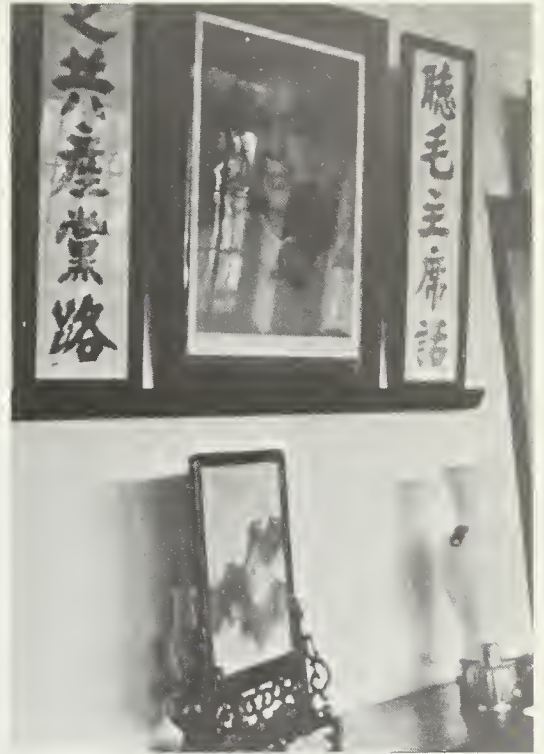 聽毛主席話
走共產黨路